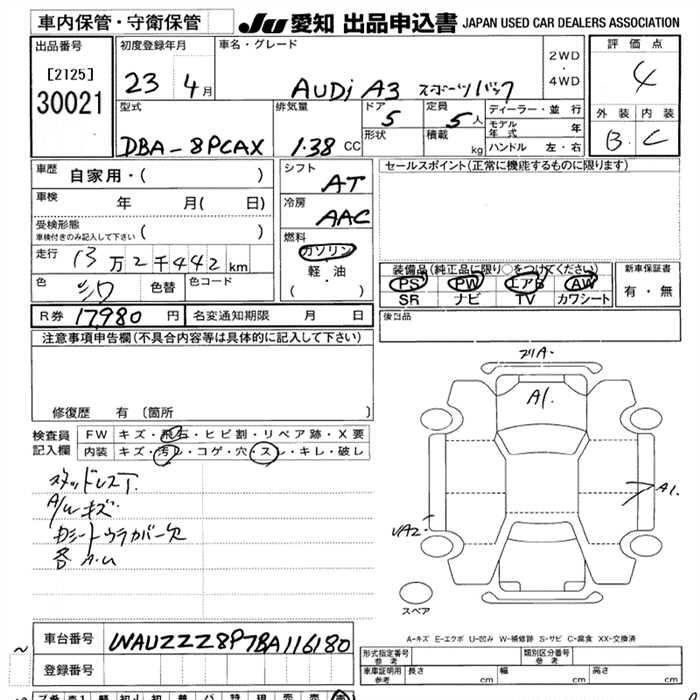 車内保管・守衛保管
JU 愛知 出品申込書 JAPAN USED CAR DEALERS ASSOCIATION
出品番号
[2125]
30021
初度登録年月
23 4月
車名・グレード
AUDi A3 スポーツバック
2WD
・
4WD
評価点
4
外装 内装
B C
型式
DBA-8PCAX
排気量
1.38 CC
ドア
5
定員
5人
形状
積載
kg
ディーラー・並行
モデル年式 年
ハンドル 左・右
車歴
自家用・( )
車検
年 月( 日)
受検形態
車検付きのみ記入して下さい ( )
走行
13万2千442km
色
シロ
色替
色コード
シフト
AT
冷房
AAC
燃料
ガソリン
軽・油
( ・ )
セールスポイント(正常に機能するものに限ります)
装備品(純正品に限り○をつけてください)
PS PW エアB AW
SR ナビ TV カワシート
新車保証書
有・無
後日品
R券 17,980円
名変通知期限 月 日
注意事項申告欄(不具合内容等は具体的に記入して下さい)
修復歴 有 〔箇所 〕
検査員
記入欄
FW キズ・飛石・ヒビ割・リペア跡・X要
内装 キズ・汚レ・コゲ・穴・スレ・キレ・破レ
スタッドレスT.
A/W キズ
カシートウラカバー欠
各 A.U
ブリA-
A1.
A1.
UA2
スペア
A-キズ E-エクボ U-凹み W-補修跡 S-サビ C-腐食 XX-交換済
車台番号
WAUZZZ8P7BA116180
登録番号
形式指定番号
参考
類別区分番号
参考
車庫証明用
参考
長さ cm
幅 cm
高さ cm